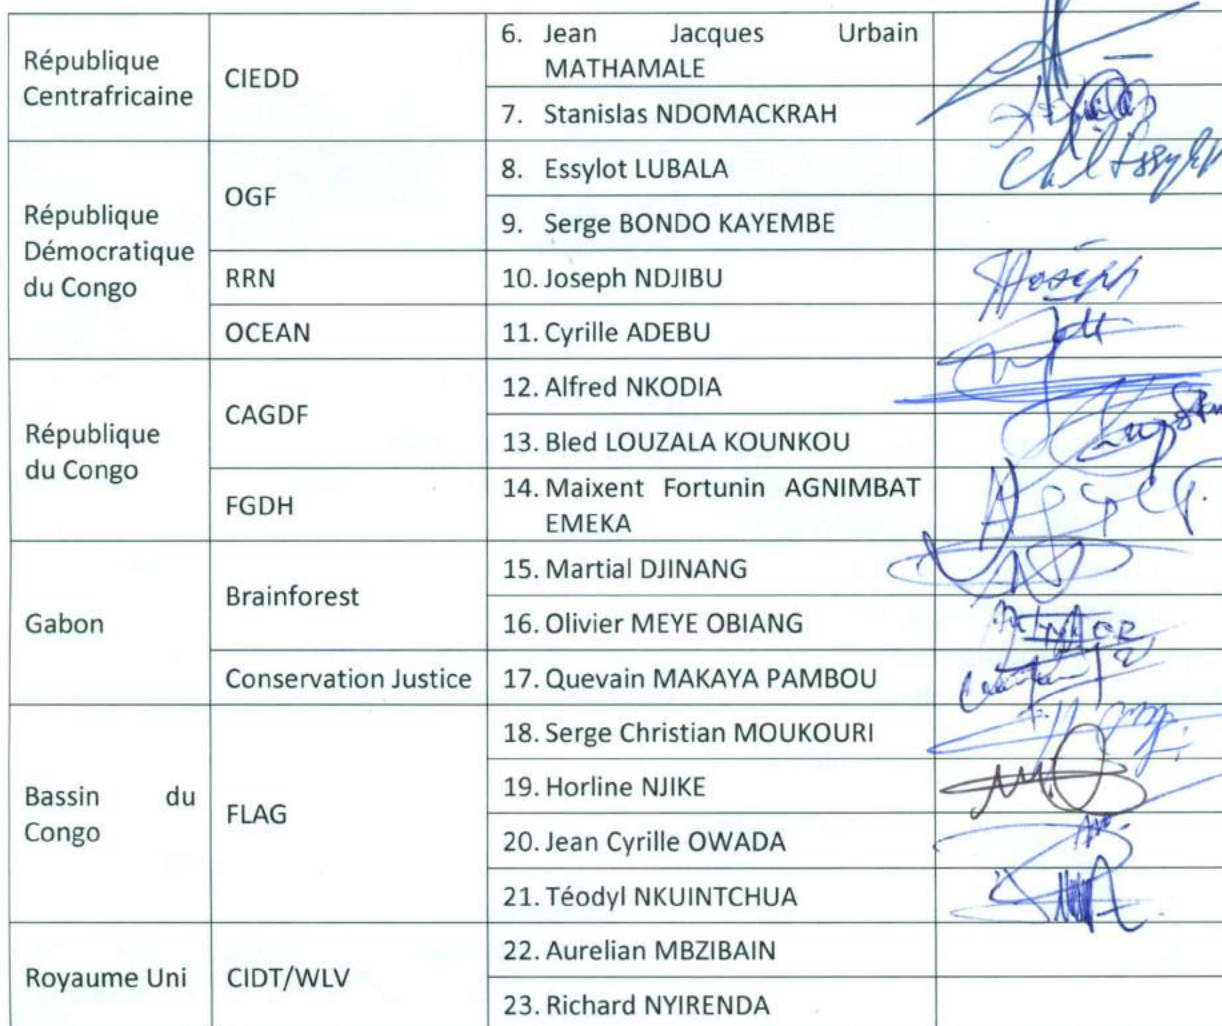 République
Centrafricaine
CIEDD
6. Jean Jacques Urbain
MATHAMALE
7. Stanislas NDOMACKRAH
République
Démocratique
du Congo
OGF
8. Essylot LUBALA
9. Serge BONDO KAYEMBE
RRN
10. Joseph NDJIBU
Joseph
OCEAN
11. Cyrille ADEBU
République
du Congo
CAGDF
12. Alfred NKODIA
13. Bled LOUZALA KOUNKOU
FGDH
14. Maixent Fortunin AGNIMBAT
EMEKA
Gabon
Brainforest
15. Martial DJINANG
16. Olivier MEYE OBIANG
Conservation Justice
17. Quevain MAKAYA PAMBOU
Bassin du
Congo
FLAG
18. Serge Christian MOUKOURI
19. Horline NJIKE
20. Jean Cyrille OWADA
21. Téodyl NKUINTCHUA
Royaume Uni
CIDT/WLV
22. Aurelian MBZIBAIN
23. Richard NYIRENDA